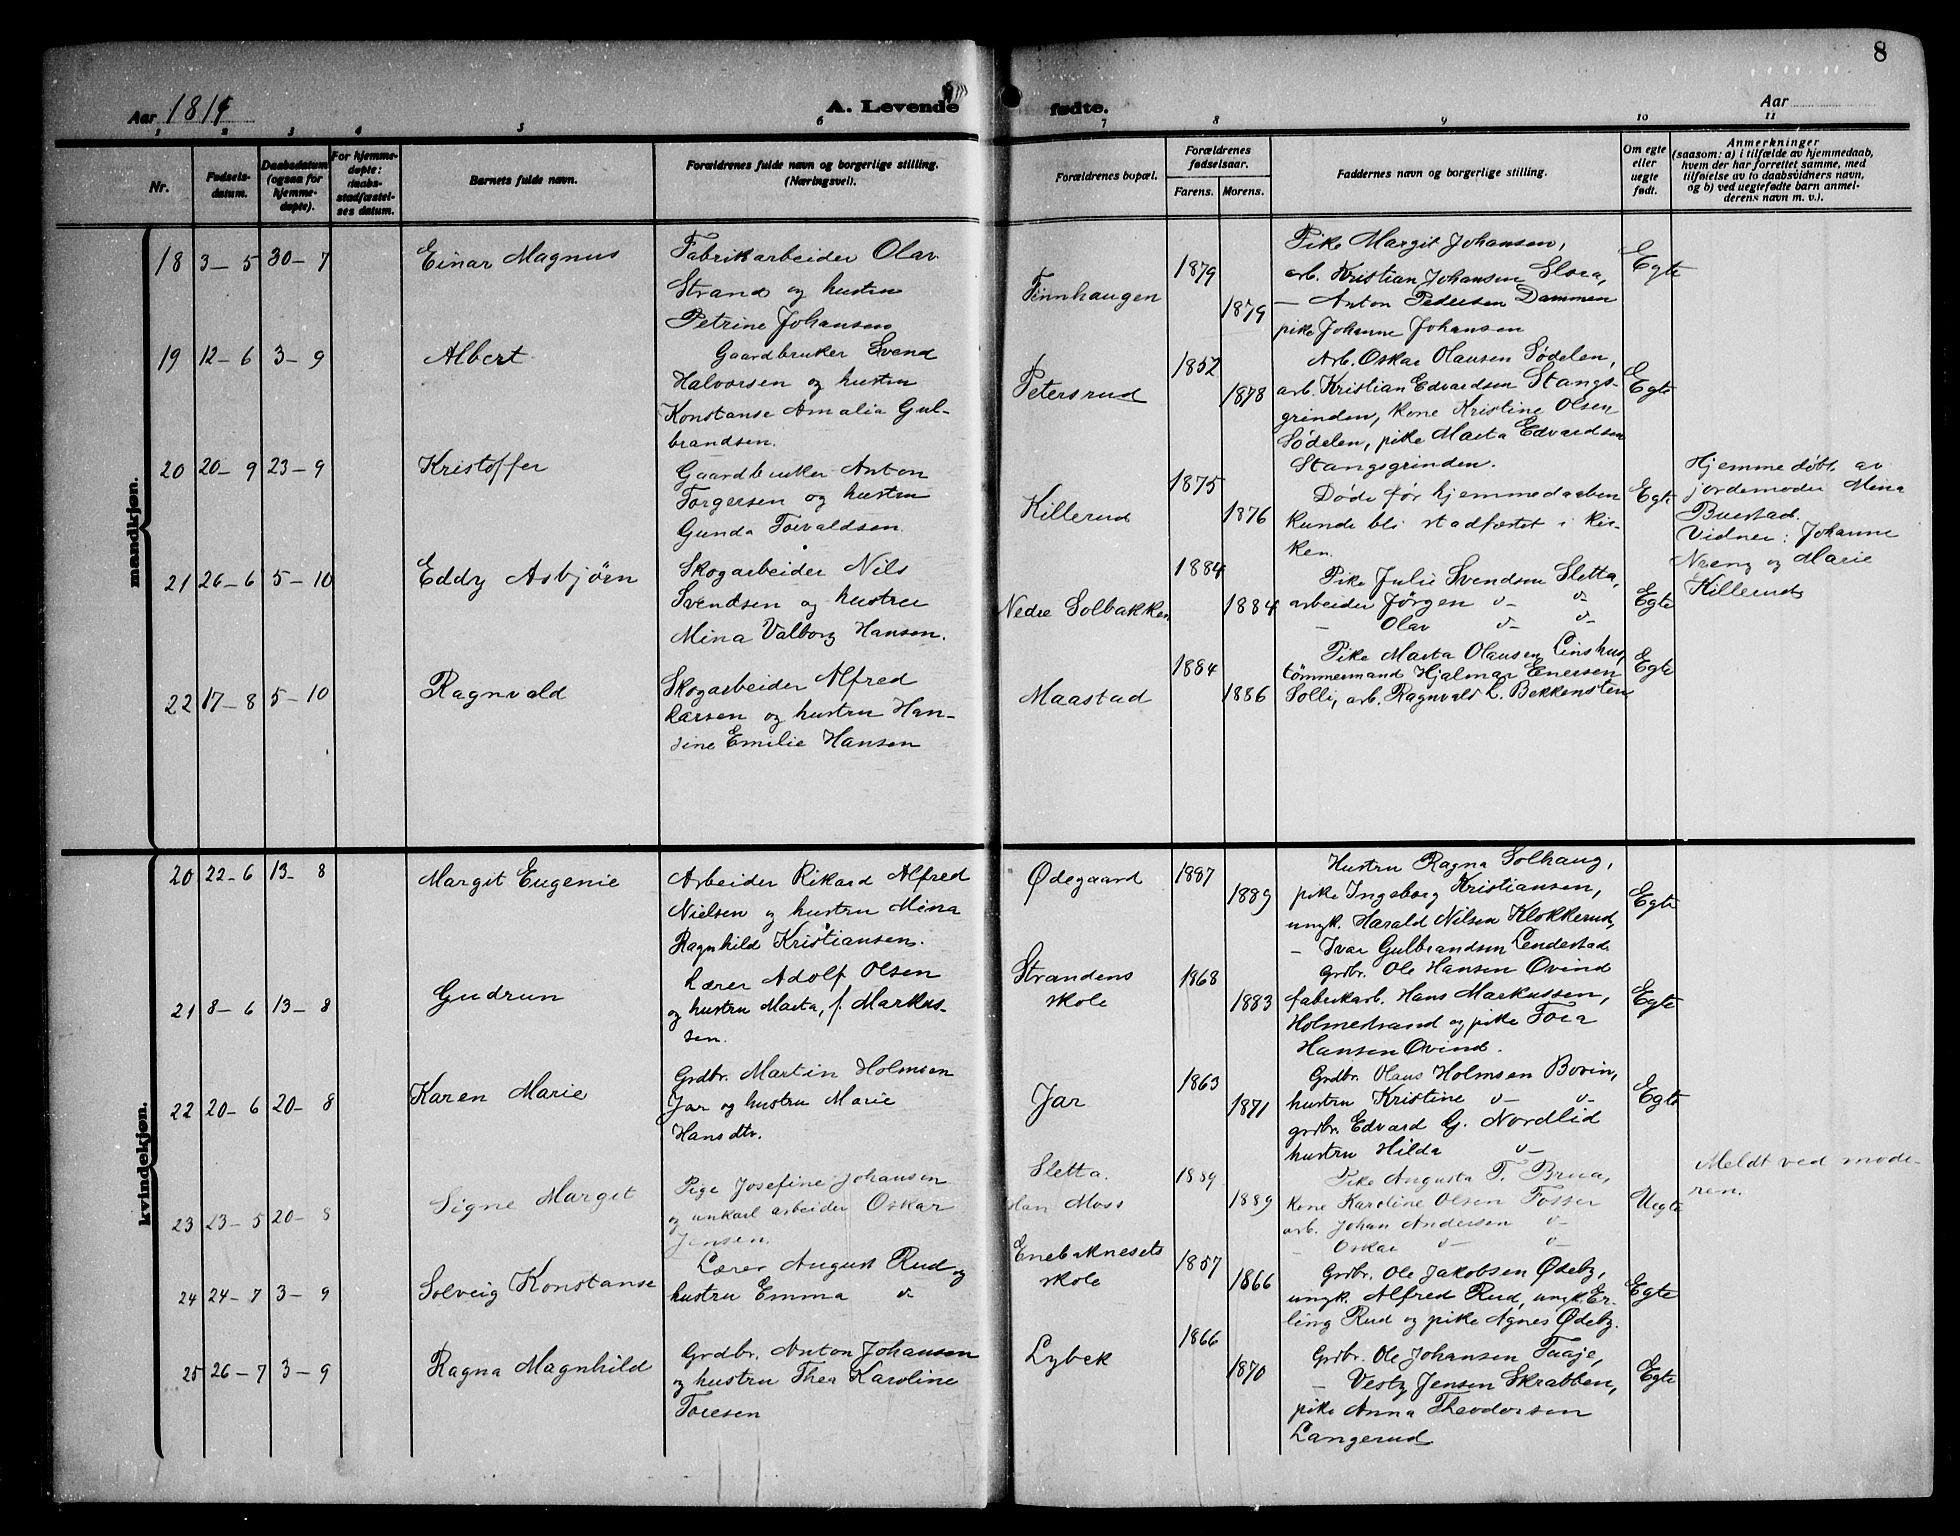 8
Aar 1814
A. Levende
fødte.
Aar
1 2 3 4 5 6
7 8 9 10 11
Nr.
Fødsels-
datum.
Daabsdatum
(ogsaa for
hjemme-
døpte).
For hjemme-
døpte:
daabs-
stadfæstel-
ses datum.
Barnets fulde navn.
Forældrenes fulde navn og borgerlige stilling.
(Næringsvei).
Forældrenes bopæl.
Forældrenes
fødselsaar.
Farens. Morens.
Faddernes navn og borgerlige stilling.
Om egte
eller
uegte
født.
Anmerkninger
(saasom: a) i tilfælde av hjemmedaab,
hvem der har forrettet samme, med
tilføielse av to daabsvidners navn,
og b) ved uegtefødte barn anmel-
derens navn m. v.).
mandkjøn.
18 3-5 30-7
Einar Magnus
Fabrikarbeider Olav
Strand og hustru
Petrine Johansen
Finnhaugen
1879
1879
Pike Margit Johansen,
arb. Kristian Johansen Slora,
— Anton Pedersen Dammen
pike Johanne Johansen
Egte
19 12-6 3-9
Albert
Gaardbruker Svend
Halvorsen og hustru
Konstanse Amalia Gul-
brandsen.
Petersrud
1852
1878
Arb. Oskar Olausen Sødelen,
arb. Kristian Edvardsen Stangs-
grinden, kone Kristine Olsen
Sødelen, pike Marta Edvardsen
Stangsgrinden.
Egte
20 20-9 23-9
Kristoffer
Gaardbruker Anton
Torgersen og hustru
Gunda Torvaldsen.
Killerud
1875
1876
Døde før hjemmedaaben
kunde bli stadfæstet i kir-
ken.
Egte
Hjemmedøbt av
jordemoder Mina
Buestad.
Vidner: Johanne
Nreng og Marie
Killerud
21 26-6 5-10
Eddy Asbjørn
Skogarbeider Nils
Svendsen og hustru
Mina Valborg Hansen.
Nedre Solbakken
1884
1884
Pike Julie Svendsen Sletta,
arbeider Jørgen v- v-
— Olav v- v-
Egte
22 17-8 5-10
Ragnvald
Skogarbeider Alfred
Larsen og hustru Han-
sine Emilie Hansen
Maastad
1884
1886
Pike Marta Olausen Linshus,
tømmermand Hjalmar Enersen
Solli, arb. Ragnvald L. Bekkensten
Egte
kvindekjøn.
20 22-6 13-8
Margit Eugenie
Arbeider Rikard Alfred
Nielsen og hustru Mina
Ragnhild Kristiansen.
Ødegaard
1887
1889
Hustru Ragna Solhaug,
pike Ingeborg Kristiansen,
ungk. Harald Nilsen Klokkerud,
— Ivar Gulbrandsen Lendestad
Egte
21 8-6 13-8
Gudrun
Lærer Adolf Olsen
og hustru Marta, f. Markus-
sen.
Strandens
skole
1868
1883
Grdbr. Ole Hansen Øvind
fabrikarb. Hans Markussen,
Holmestrand og pike Tora
Hansen Øvind.
Egte
22 20-6 20-8
Karen Marie
Grdbr. Martin Holmsen
Jar og hustru Marie
Hansdtr.
Jar
1863
1871
Grdbr. Olaus Holmsen Borin,
hustru Kristine v- v-
grdbr. Edvard G. Nordlid
hustru Hilda v-
Egte
23 23-5 20-8
Signe Margit
Pige Josefine Johansen
og unkarl arbeider Oskar
Jensen.
Sletta.
Han Moss
1889
1889
Pike Augusta T. Brua,
kone Karoline Olsen Fosser
arb. Johan Andersen v-
— Oskar v- v-
Uegte
Meldt ved mode-
ren.
24 24-7 3-9
Solveig Konstanse
Lærer August Rud og
hustru Emma v-
Enebaknesets
skole
1857
1866
Grdbr. Ole Jakobsen Ødeby,
ungk. Alfred Rud, ungk. Er-
ling Rud og pike Agnes Ødeby.
Egte
25 26-7 3-9
Ragna Magnhild
Grdbr. Anton Johansen
og hustru Thea Karoline
Toresen
Lybek
1866
1870
Grdbr. Ole Johansen Taaje,
— Vesty Jensen Skrabben,
pike Anna Theodorsen
Langerud
Egte